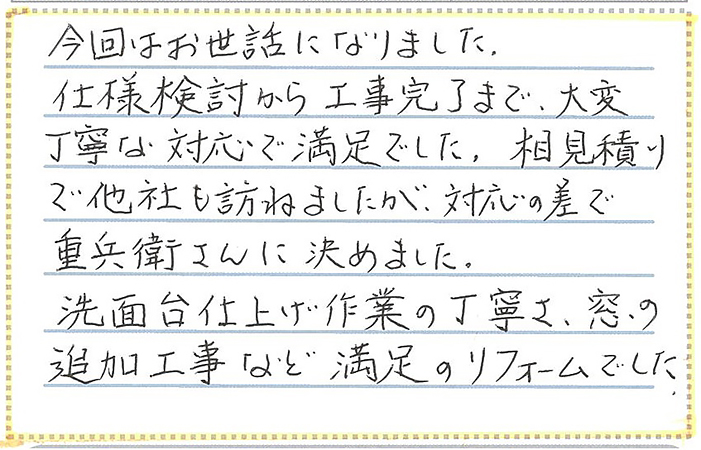 今回はお世話になりました。
仕様検討から工事完了まで、大変
丁寧な対応で満足でした。相見積り
で他社も訪ねましたが、対応の差で
重兵衛さんに決めました。
洗面台仕上げ作業の丁寧さ、窓の
追加工事など満足のリフォームでした。